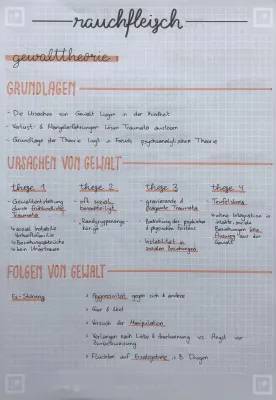 rauchfleisch
gewalttheorie
GRUNDLAGEN
- Die Ursachen von Gewalt liegen in der Kindheit
- Verlust- & Mangelerfahrungen lösen Traumata aus
- Grundlage der Theorie liegt in Freuds psychoanalytischen Theorie
URSACHEN VON GEWALT
these 1
- Gewaltentstehung durch frühkindliche Traumata
↳ sozial instabile
↳ Beziehungsabbrüche
↳ kein Urvertrauen
these 2
- oft sozial benachteiligt
- Randgruppen
these 3
- gravierende & Traumata
- Bedrohung der psychischen & physischen Existenz
- Instabilität in sozialen Beziehungen
these 4
- Teufelskreis
- ohne Integration in intakte, soziale Beziehungen kein Ausweg aus der Gewalt
FOLGEN VON GEWALT
Es-Störung
› Aggressivität gegen sich & andere
› Gier & Ekel
› Versuch der Manipulation
› Verlangen nach Liebe & Anerkennung vs. Angst vor Zurückweisung
› Flüchten auf Ersatzobjekte z. B. Drogen